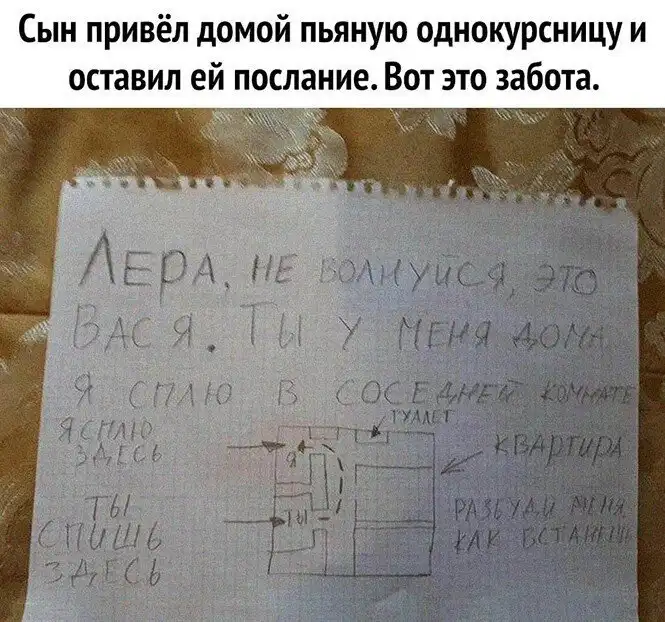 Сын привёл домой пьяную однокурсницу и
оставил ей послание. Вот это забота.
ЛЕРА, НЕ ВОЛНУЙСЯ, ЭТО
ВАСЯ. ТЫ У МЕНЯ ДОМА
Я СПЛЮ В СОСЕДНЕЙ КОМНАТЕ
ТУАЛЕТ
Я СПЛЮ
ЗДЕСЬ
Я
КВАРТИРА
ТЫ
СПИШЬ
ЗДЕСЬ
ТЫ
РАЗБУДИ МЕНЯ
КАК ВСТАНЕШЬ